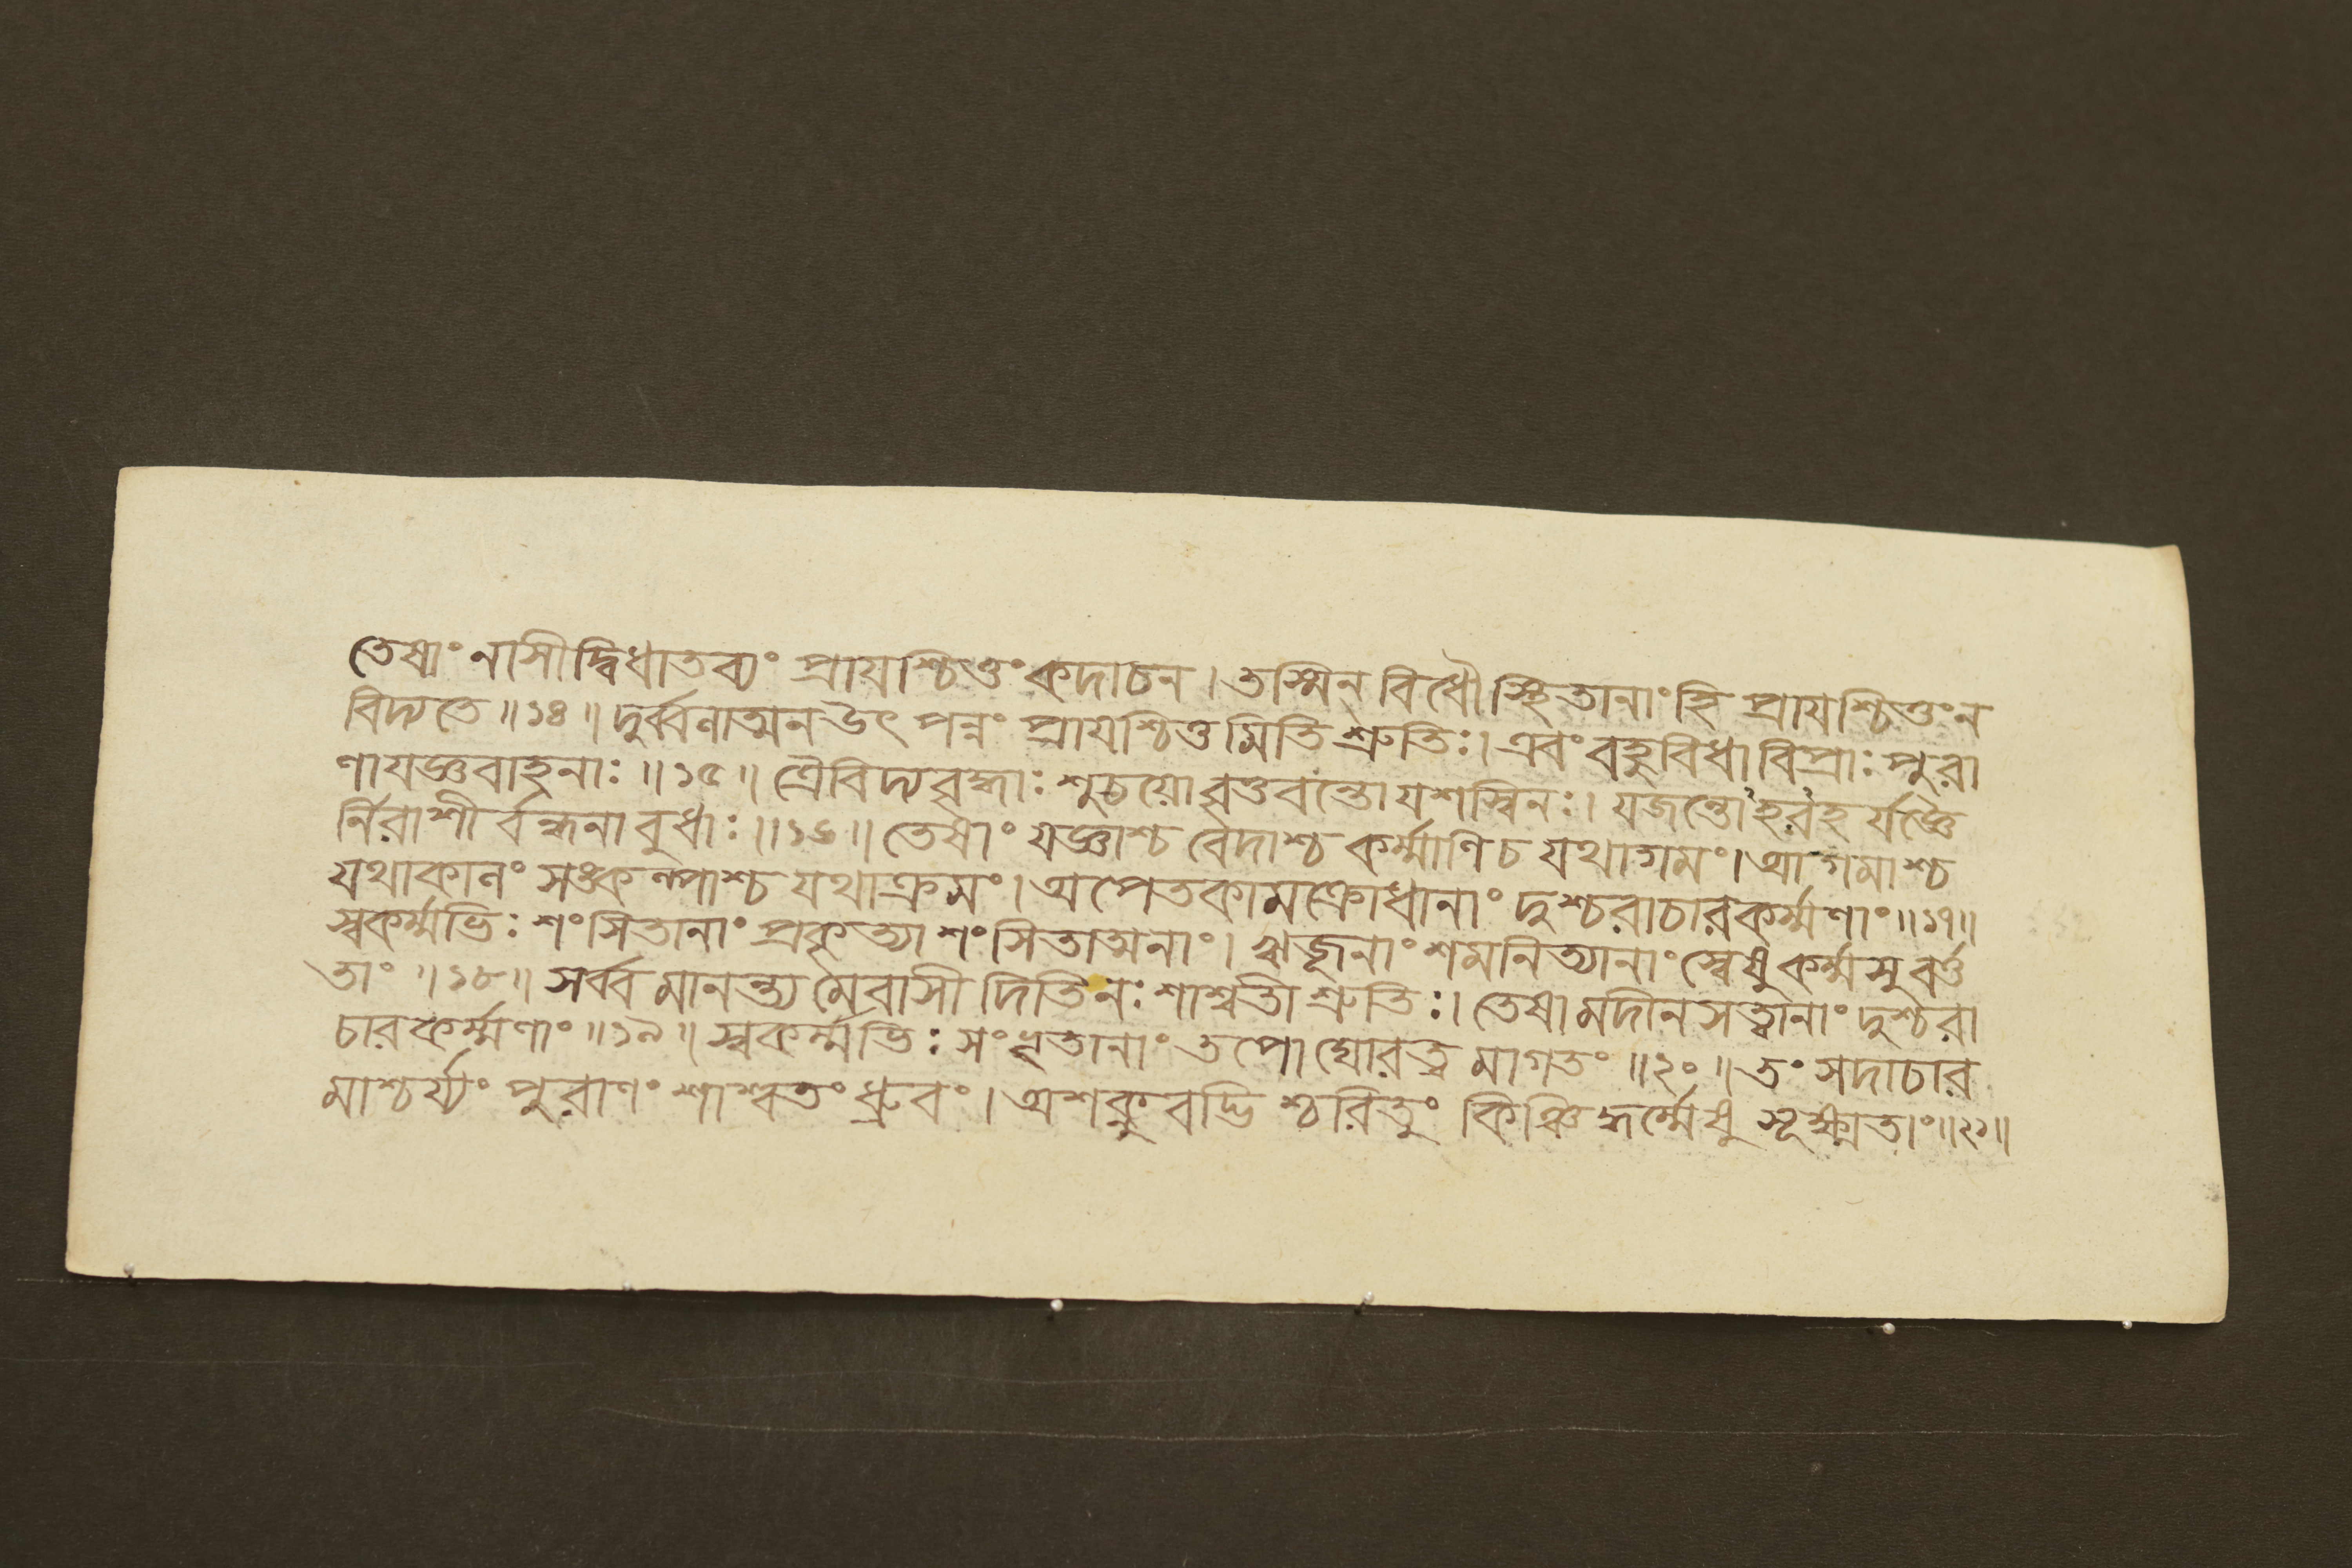 তেষাং নাসীদ্বিধাতব্যং প্রাযশ্চিত্তং কদাচন। তস্মিন্ বিধৌ স্থিতানাং হি প্রাযশ্চিত্তং ন
বিদ্যতে॥১৪॥ দুর্ব্বলাত্মন উৎপন্নং প্রাযশ্চিত্তমিতি শ্রুতিঃ। এবং বহুবিধা বিপ্রাঃ পুরা
ণা যজ্ঞবাহনাঃ॥১৫॥ ত্রৈবিদ্যবৃদ্ধাঃ শুচয়ো বৃত্তবন্তো যশস্বিনঃ। যজন্তো'হরহর্যজ্ঞৈ
র্নিরাশীর্বন্ধনা বুধাঃ॥১৬॥ তেষাং যজ্ঞাশ্চ বেদাশ্চ কর্ম্মাণি চ যথাগমং। আগমাশ্চ
যথাকালং সঙ্কল্পাশ্চ যথাক্রমং। অপেতকামক্রোধানাং দুশ্চরাচারকর্ম্মণাং॥১৭॥
স্বকর্ম্মভিঃ শংসিতানাং প্রকৃত্যা শংসিতাত্মনাং। ঋজূনাং শমনিত্যানাং স্বেষু কর্ম্মসু বর্ত্ত
তাং॥১৮॥ সর্ব্বমানন্ত্যমেবাসীদিতি নঃ শাশ্বতী শ্রুতিঃ। তেষামদীনসত্ত্বানাং দুশ্চরা
চারকর্ম্মণাং॥১৯॥ স্বকর্ম্মভিঃ সংধৃতানাং তপো ঘোরত্বমাগতং॥২০॥ তং সদাচার
মাশ্চর্য্যং পুরাণং শাশ্বতং ধ্রুবং। অশক্নুবদ্ভিশ্চরিতুং কিঞ্চিদ্ধর্ম্মেষু সূক্ষ্মতাং॥২১॥